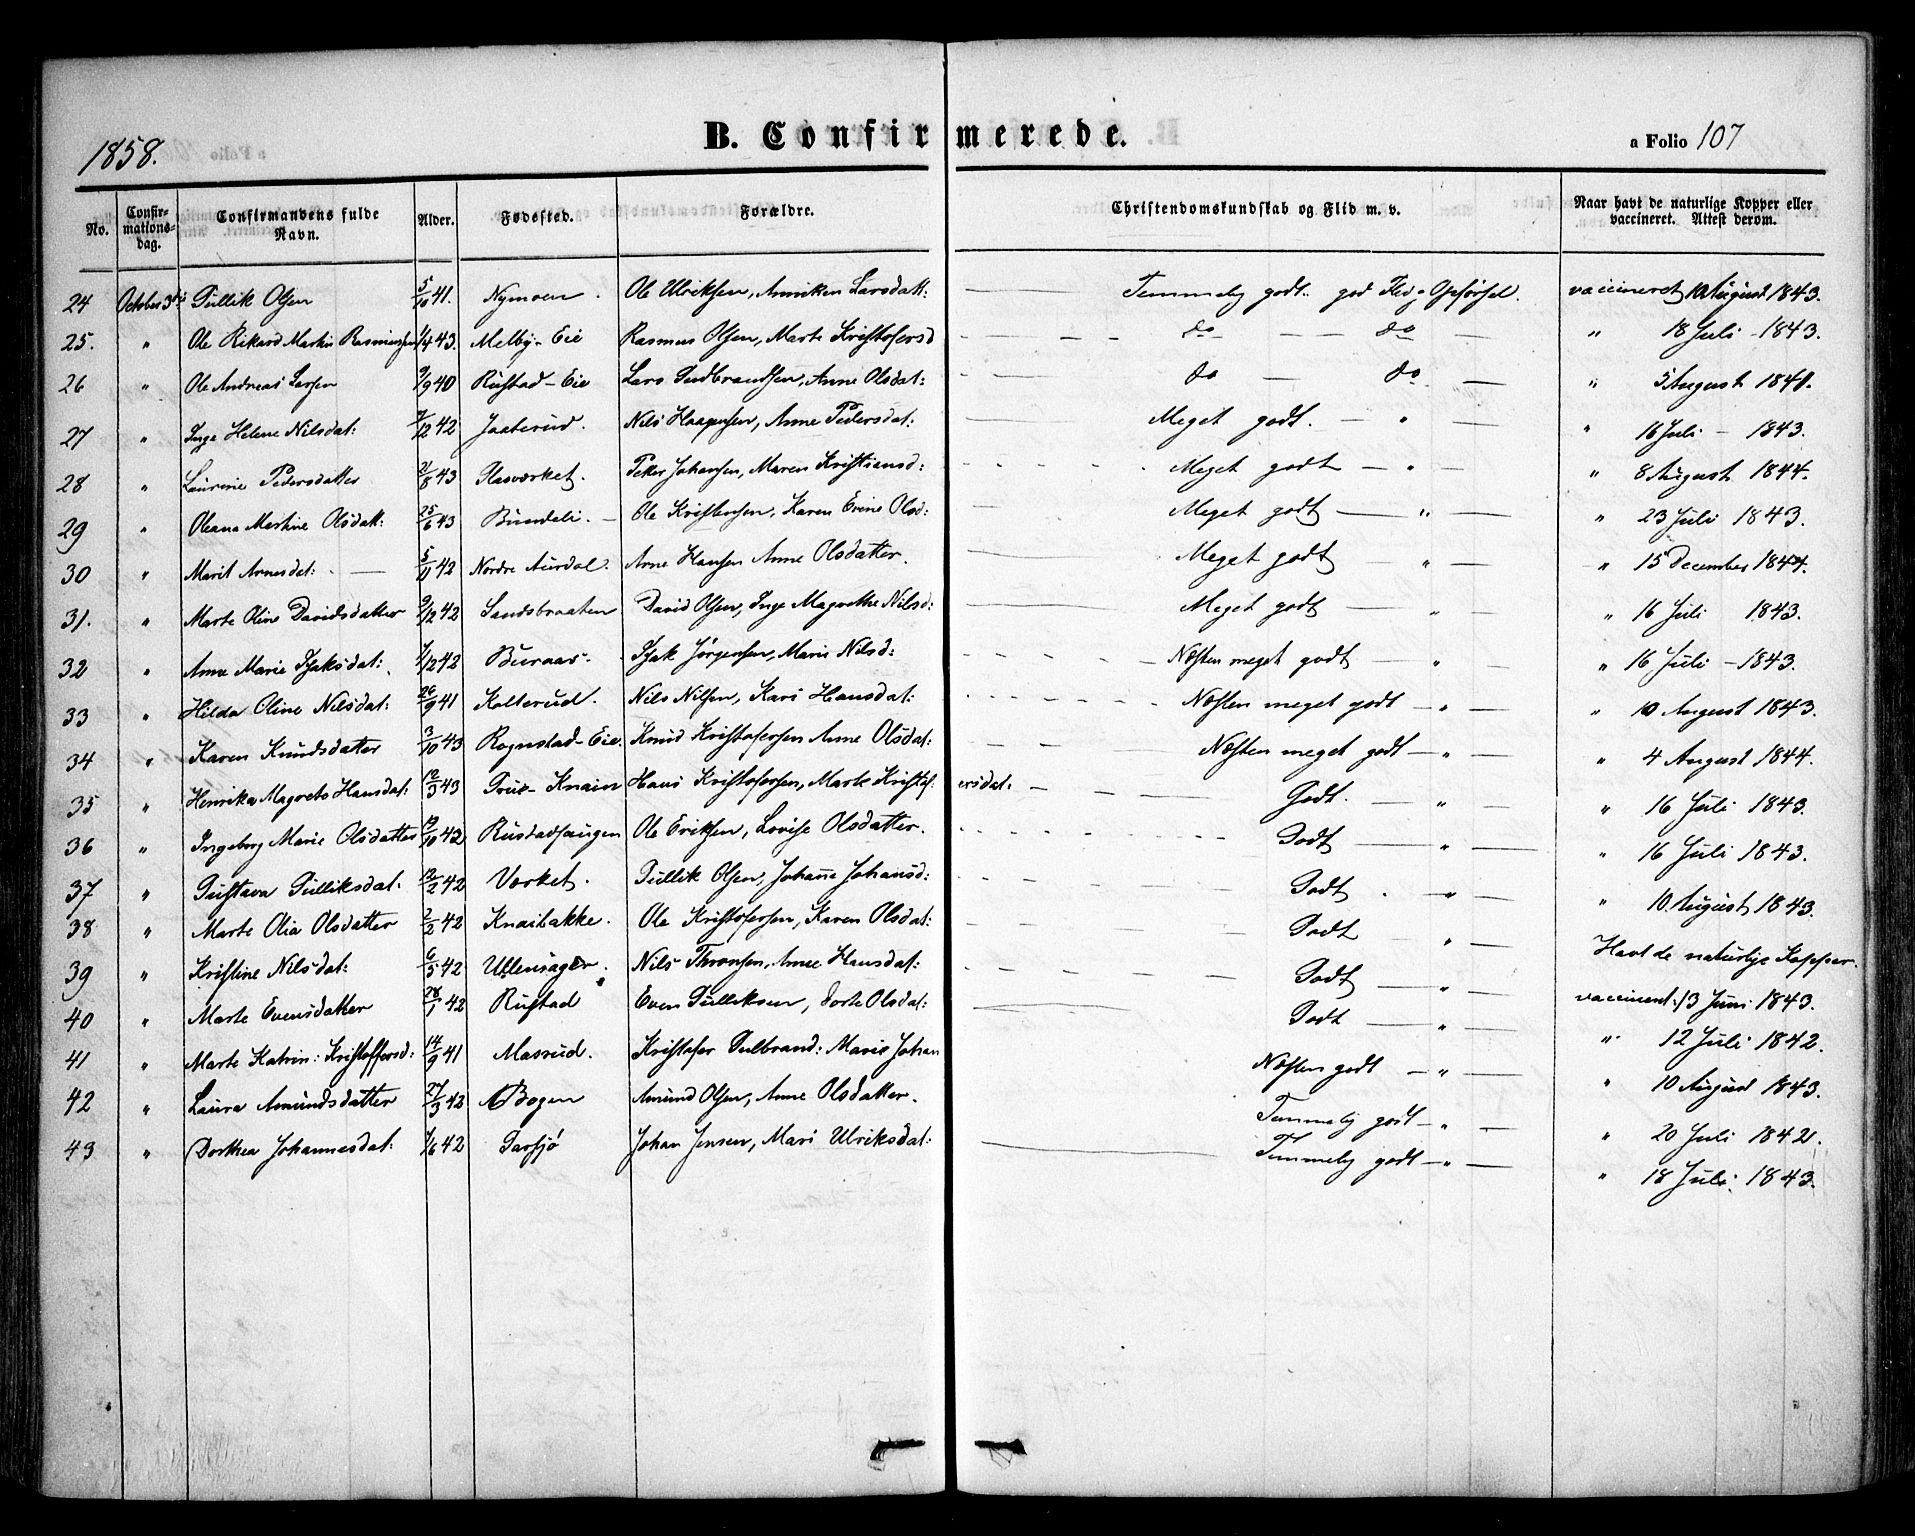 1858.
B. Confirmerede.
a Folio 107
No. Confirmationsdag. Confirmandens fulde Navn. Alder. Fødested. Forældre. Christendomskundskab og Flid m. v. Naar havt de naturlige Kopper eller vaccineret. Attest derom.
24 October 3die Gullik Olsen 5/10 41. Nymoen. Ole Ulriksen, Anniken Larsdatt: Temmelig godt. god Flid og Opførsel. vaccineret 10 August 1843.
25. " Ole Rikard Martin Rasmussen 1/4 43. Melby-Eie Rasmus Olsen, Marte Kristofersd do do " 18 Juli - 1843.
26 " Ole Andreas Larsen 9/9 40 Rustad-Eie Lars Gudbrandsen, Anne Olsdat: do do " 5 August 1841.
27 " Inge Helene Nilsdat: 7/12 42 Jaaterud. Nils Haagensen, Anne Pedersdat: Meget godt. " " 16 Juli - 1843.
28 " Laurine Pedersdatter 21/8 43 Glasværket. Peter Johansen, Maren Kristiansd: Meget godt " " 8 August 1844.
29 " Oleana Martine Olsdatt: 25/6 43 Bundeli. Ole Kristensen, Karen Erine Olsd: Meget godt " " 23 Juli 1843.
30 " Marit Arnesdat: 5/11 42 Nordre Aurdal. Arne Hansen Anne Olsdatter. Meget godt " " 15 December 1844.
31. " Marte Oline Davidsdatter 9/12 42 Sandsbraaten David Olsen, Inge Magrethe Nilsd: Meget godt " " 16 Juli 1843.
32 " Anne Marie Isaksdat: 1/12 42 Buraas. Isak Jørgensen, Marie Nilsd: Næsten meget godt " " 16 Juli - 1843.
33 " Hilda Oline Nilsdat: 26/9 41 Kolterud. Nils Nilsen, Kari Hansdat: Næsten meget godt " " 10 August 1843.
34 " Karen Knudsdatter 3/10 43 Rognstad-Eie. Knud Kristofersen Anne Olsdat: Næsten meget godt " " 4 August 1844.
35 " Henrika Magrete Hansdat: 12/3 43 Grue-Knain Hans Kristofersen, Marte Kristofersdat: Godt. " " 16 Juli 1843.
36 " Ingeborg Marie Olsdatter 12/10 42 Rustadsaugen Ole Eriksen, Lovise Olsdatter. Godt " " 16 Juli 1843.
37 " Gustava Gulliksdat. 12/2 42 Værket. Gullik Olsen, Johanne Johansd: Godt. " " 10. August 1843.
38 " Marte Olia Olsdatter 2/2 42 Knaibakke. Ole Kristofersen, Karen Olsdat: Godt " Havt de naturlige Kopper.
39 " Kristine Nilsdat: 6/5 42 Ullensager. Nils Thronsen, Anne Hansdat: Godt " vaccineret 13 Juni 1843.
40 " Marte Evensdatter 28/1 42 Rustad Even Gulliksen, Dorte Olsdat: Godt " " 12 Juli 1842.
41 " Marte Katrin: Kristoffersd: 14/9 41 Masrud. Kristofer Gulbrand: Marie Johan Næsten godt " " 10 August 1843.
42 " Laura Amundsdatter 27/3 42 Bogen Amund Olsen, Anne Olsdatter. Temmelig godt " " 20 Juli 1842.
43 " Dorthea Johannesdat: 1/6 42 Garsjø Johan Jensen, Mari Ulriksdat: Temmelig godt " " 18 Juli 1843.